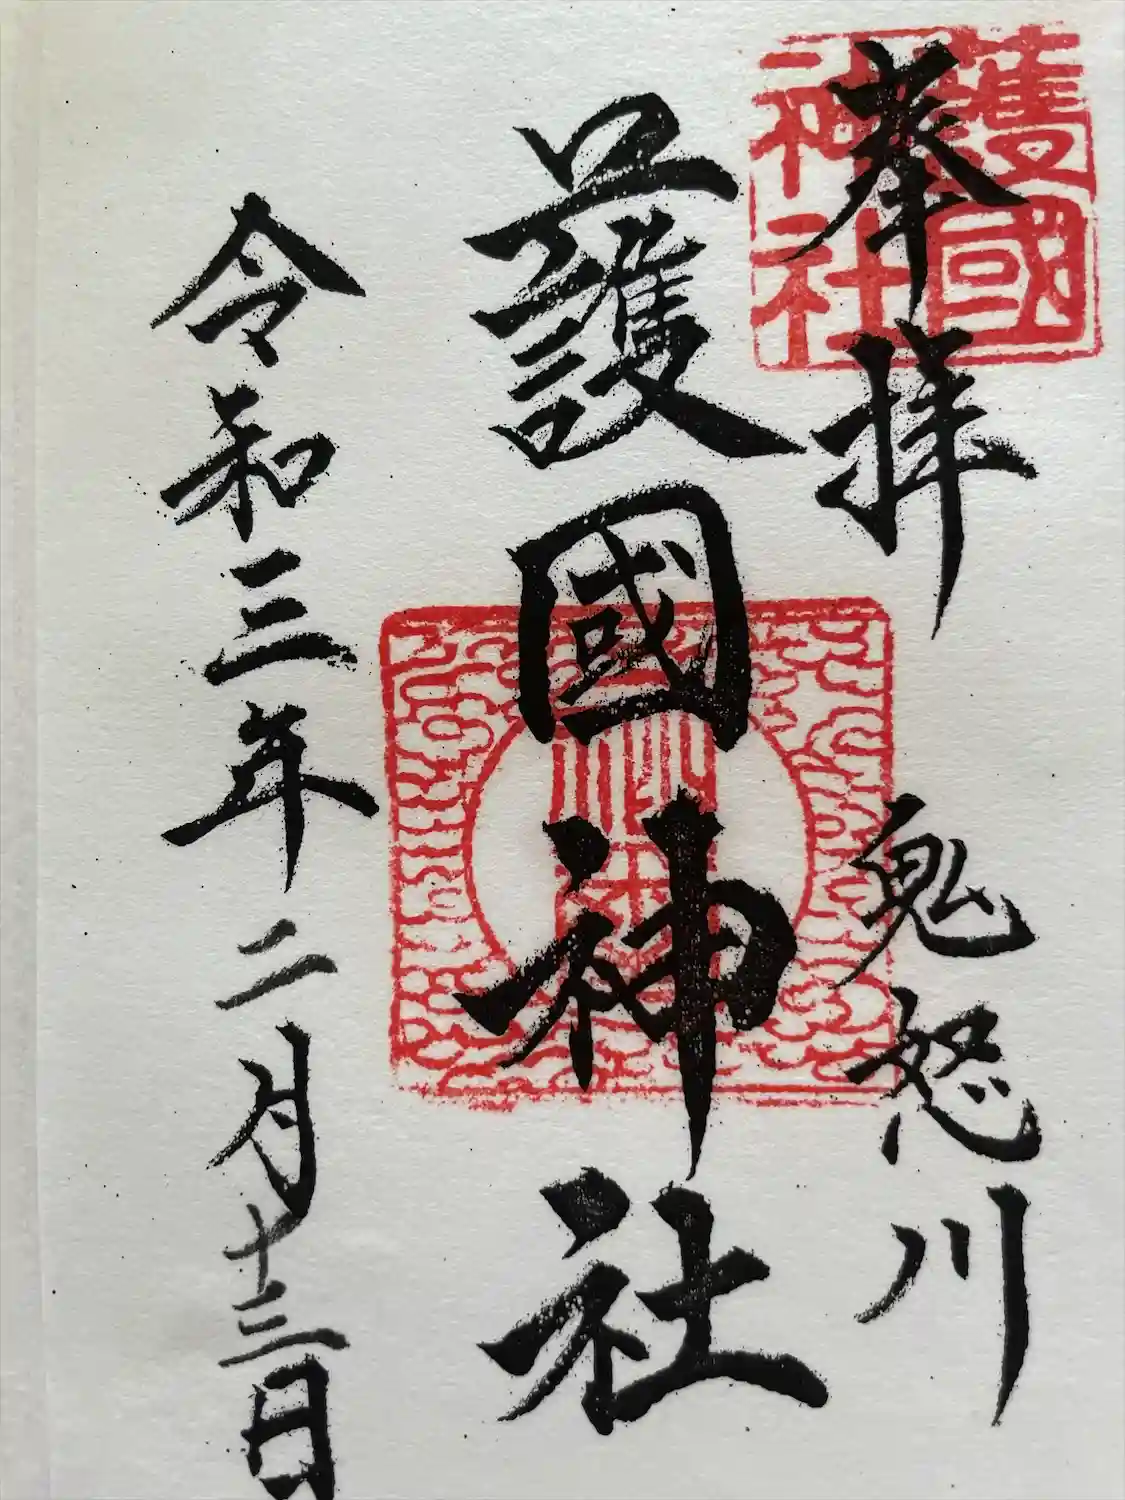 奉拝
鬼怒川
護國神社
令和三年二月十三日
護國
神社